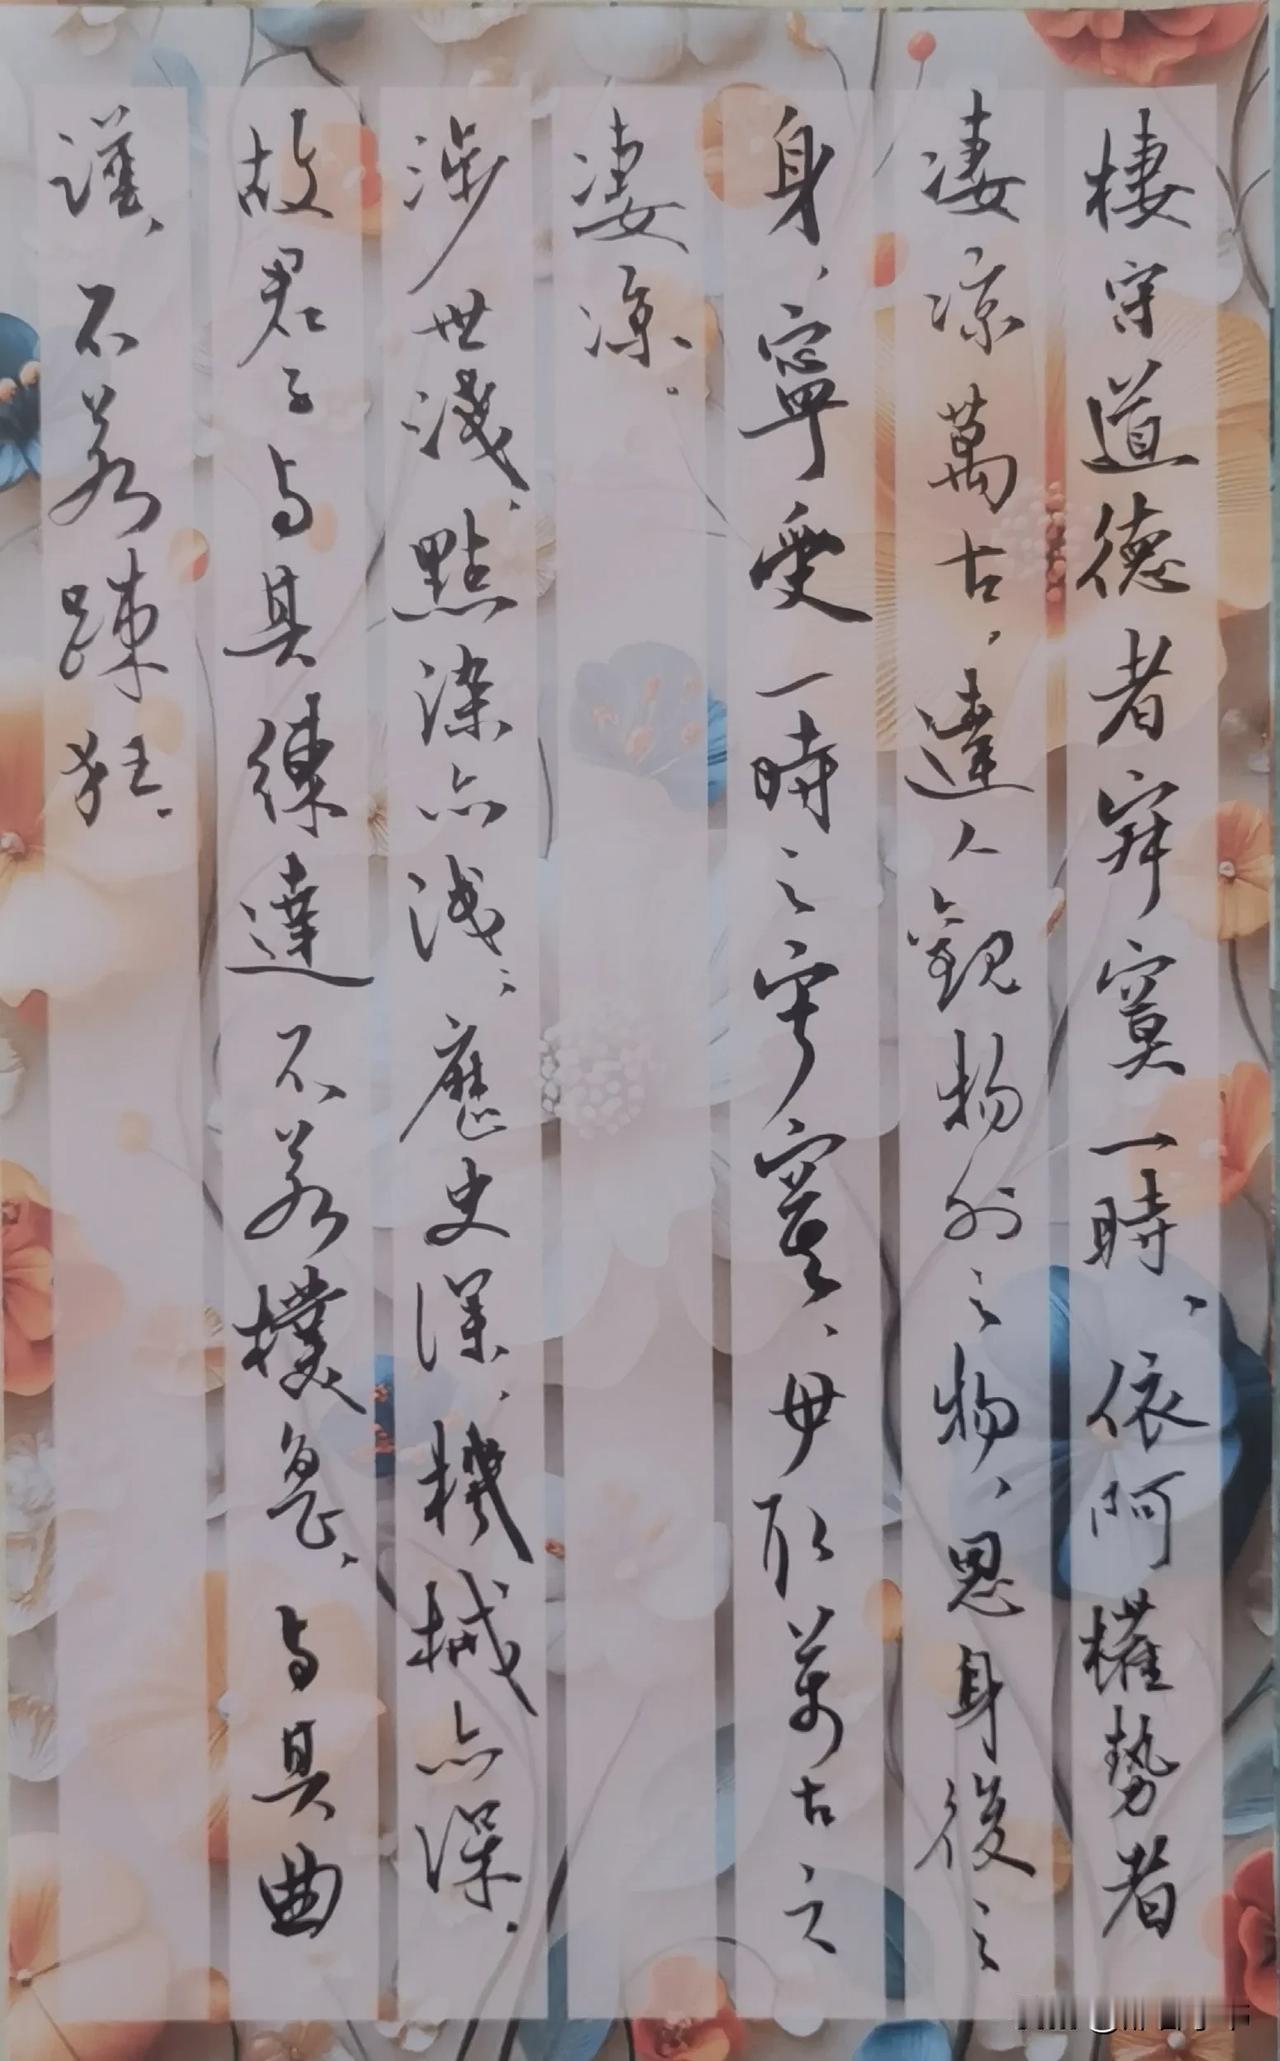 棲守道德者寂寞一時、依阿權勢者
凄涼萬古、達人觀物外之物、思身後之
身、寧受一時之寂寞、毋取萬古之
凄涼。
涉世淺、點染亦淺、歷史深、機械亦深。
故君子与其練達不若樸魯、与其曲
謹、不若踈狂.